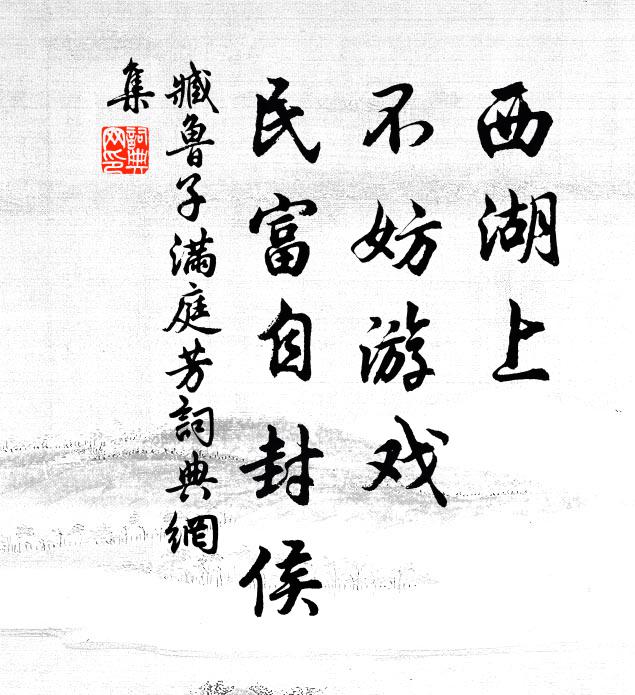 西湖上
不妨游戏
民富自封侯
臧鲁子满庭芳词典網
集
詞典
网印